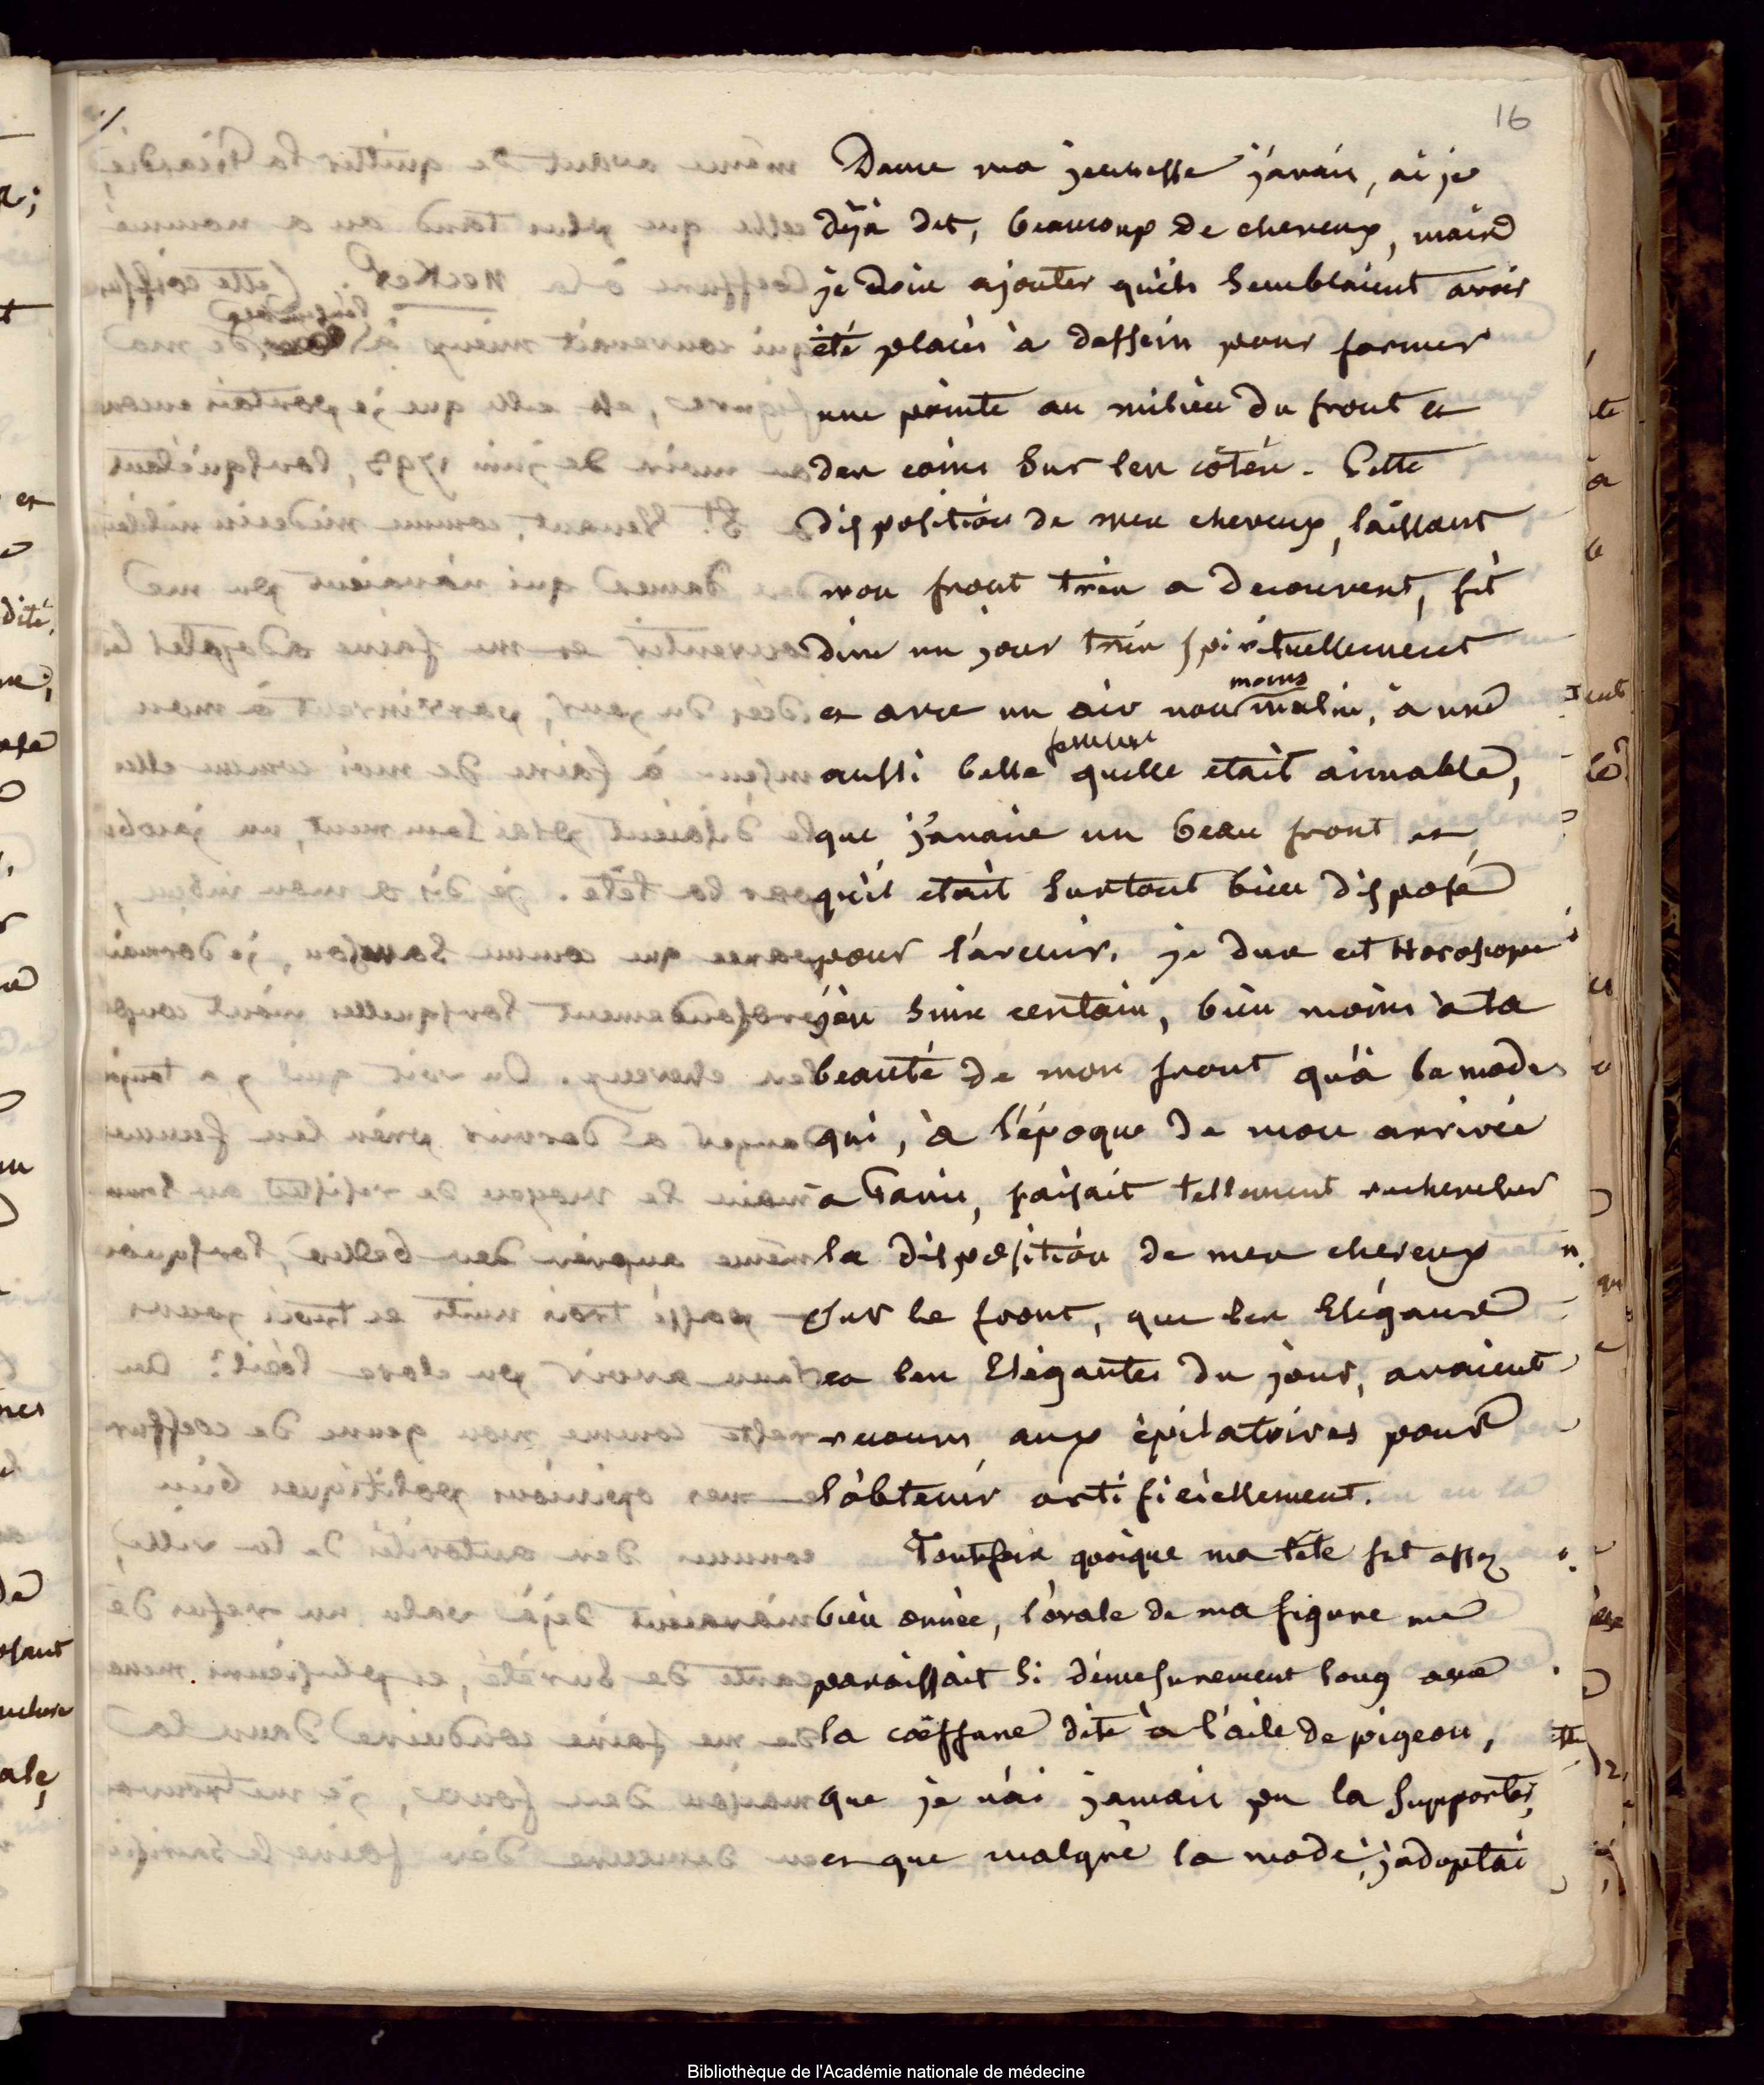 16
Dans ma jeunesse j'avais, ai je
déjà dit, beaucoup de cheveux, mais
je dois ajouter qu'ils semblaient avoir
été placés à dessein pour former
une pointe au milieu du front et
des coins sur les côtés. Cette
disposition de mes cheveux, laissant
mon front très a decouvert, fit
dire un jour très spirituellement
moins
et avec un air non malin, à une
femme
aussi belle quelle etait aimable,
que j'avais un beau front et
qu'il etait surtout bien disposé
pour l'avenir. je dus cet Horoscope
j'en suis certain, bien moins à la
beauté de mon front qu'à la mode
qui, à l'époque de mon arrivée
a Paris, faisait tellement rechercher
la disposition de mes cheveux
sur le front, que les Elégans
et les Elégantes du jour, avaient
recours aux épilatoires pour
l'obtenir artificiellement.
Toutefois quoique ma tête fut assez
bien ornée, l'ovale de ma figure me
paraissait si démesurement long avec
la coëffure dite à l'aile de pigeon,
que je n'ai jamais pu la supporter,
et que malgré la mode, j'adoptai
Bibliothèque de l'Académie nationale de médecine